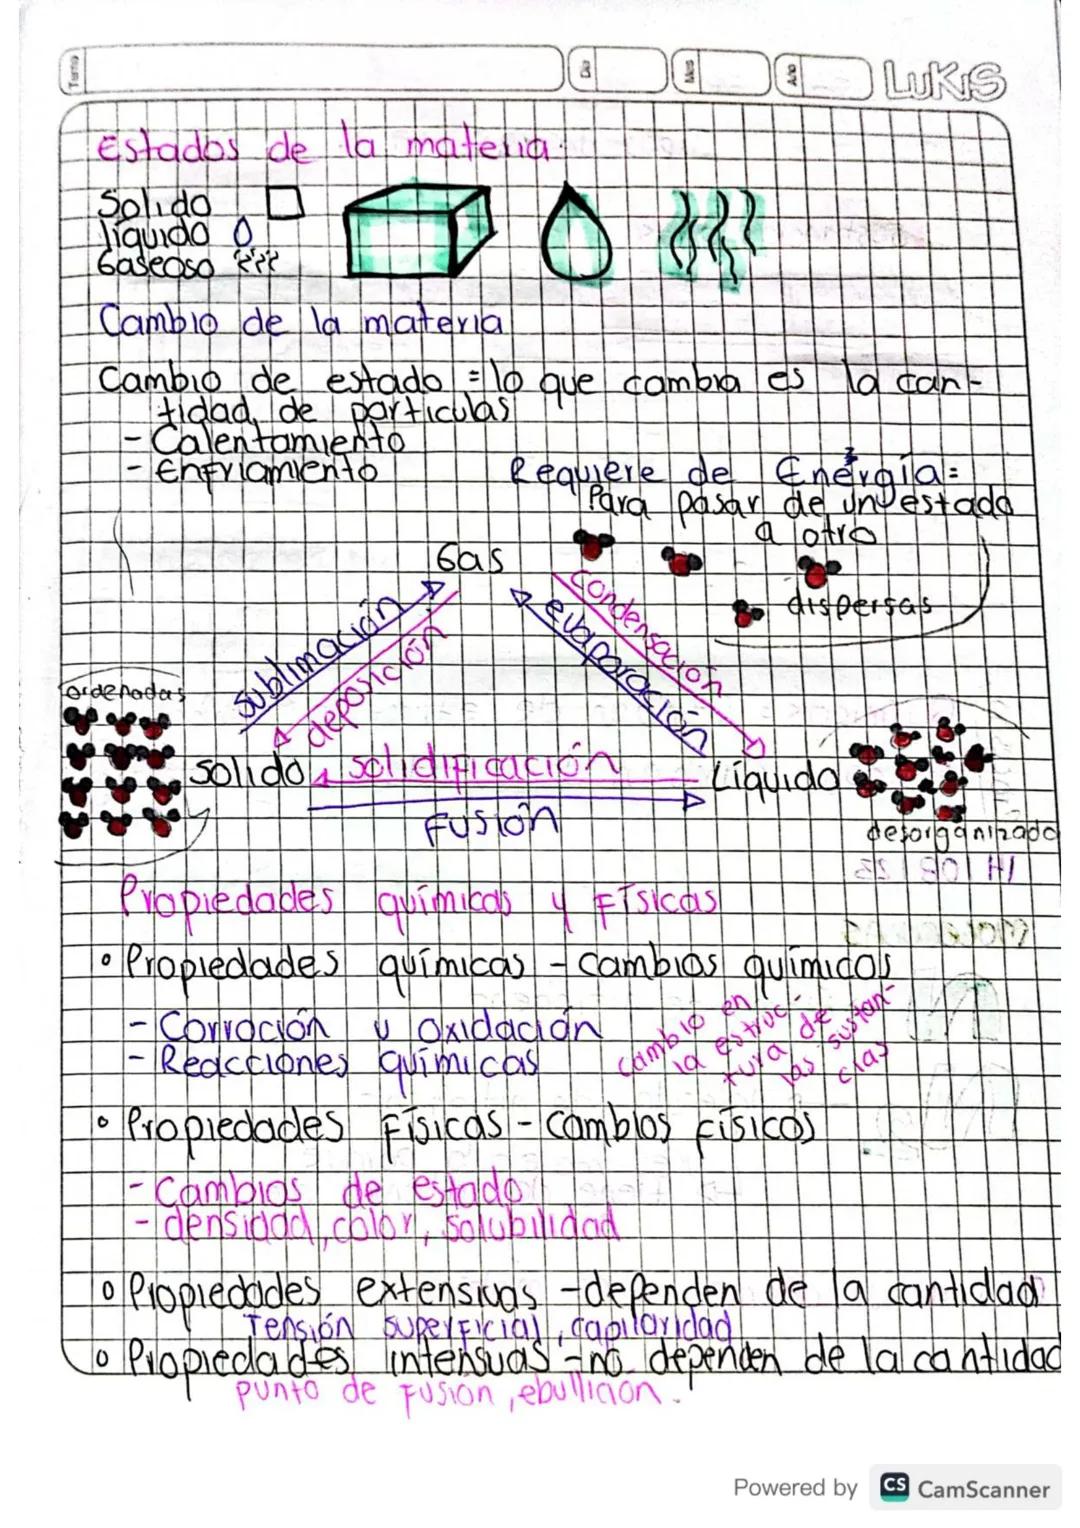 Tema Día Mes Año LUKIS
Estados de la materia
Solido
líquido
Gaseoso
Cambio de la materia
Cambio de estado = lo que cambia es la can-
tidad de particulas
- Calentamiento
- Enfriamiento
Requiere de Energía:
Para pasar de un estado
a otro
Gas
dispersas
sublimación
deposición
condensación
evaporación
ordenadas
Solido
solidificación
Líquido
Fusión
desorganizado
Propiedades químicas y Físicas
• Propiedades químicas - cambios químicos
- Corroción u oxidación
- Reacciones químicas
cambio en
la estruc-
tura de
las sustan-
cias
• Propiedades Físicas - cambios físicos
- Cambios de estado
- densidad, color, solubilidad
• Propiedades extensivas - dependen de la cantidad
Tensión superficial, capilaridad
• Propiedades intensivas - no dependen de la cantidad
punto de fusion, ebullición.
Powered by CS CamScanner